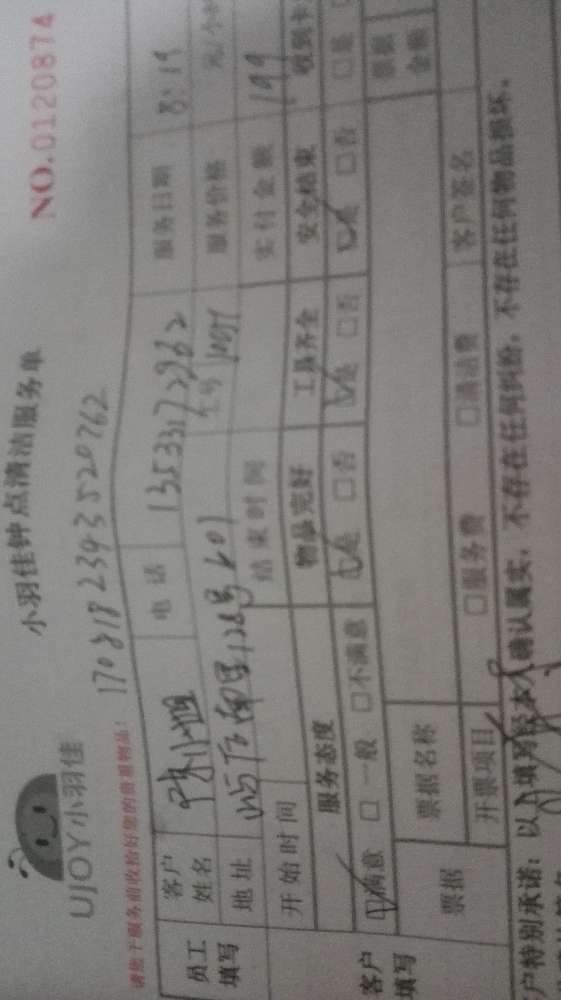 NO.0120874
小羽佳钟点清洁服务单
UJOY小羽佳
1708182393520762
请您于服务前收拾好您的贵重物品！
员工填写
客户姓名 陈小姐 电话 13533172962 服务日期 8.19
地址 后面里128号601 工号 服务价格 元/小时
开始时间 结束时间 实付金额 199
客户填写
服务态度 物品完好 工具齐全 安全结束 收到卡
☑满意 □一般 □不满意 ☑是 □否 ☑是 □否 ☑是 □否 □是
票据 票据名称 票据金额
开票项目 □服务费 □清洁费 客户签名
户特别承诺：以上填写经本人确认属实，不存在任何纠纷，不存在任何物品损坏。